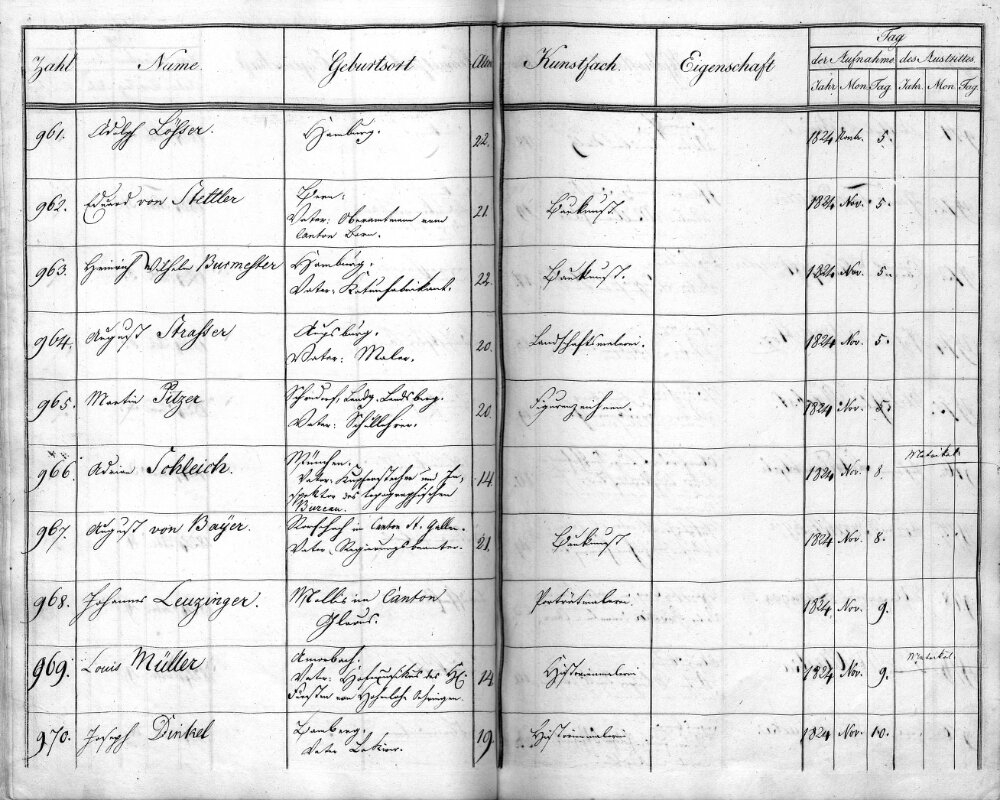 Zahl Name. Geburtsort Alter Kunstfach. Eigenschaft Tag
der Aufnahme des Austrittes.
Jahr Mon. Tag. Jahr. Mon. Tag.
961. Adolph Löhser. Hamburg. 22. 1824 5.
962. Eduard von Stettler Bern: 21. Baukunst. 1824 Nov. 5.
Vater: Oberamtmann vom
Canton Bern.
963. Heinrich Wilhelm Burmester Hamburg. 22. Baukunst. 1824 Nov. 5.
Vater: Katunfabrikant.
964. August Strasser Augsburg. 20. Landschaftsmalerei. 1824 Nov. 5.
Vater: Maler.
965. Martin Pitzer Landg. Landsberg. 20. Figurenzeichnen. 1824 Nov. 5.
Vater: Schullehrer.
966. Adrian Schleich. München. 14. 1824 Nov. 8. Matrikel
Vater: Kupferstecher und In-
spektor des topographischen
Bureau.
967. August von Bayer. Rorschach im Canton St. Gallen. 21. Baukunst 1824 Nov. 8.
Vater: Regierungsbeamter.
968. Johannes Leuzinger. Mollis im Canton Porträtmalerei 1824. Nov. 9.
Glarus.
969. Louis Müller Amorbach. 14 Historienmalerei 1824 Nov. 9. Matrikel
Vater: des
Fürsten von Hohenlohe
970. Joseph Dinkel Bamberg. 19. Historienmalerei 1824 Nov. 10.
Vater